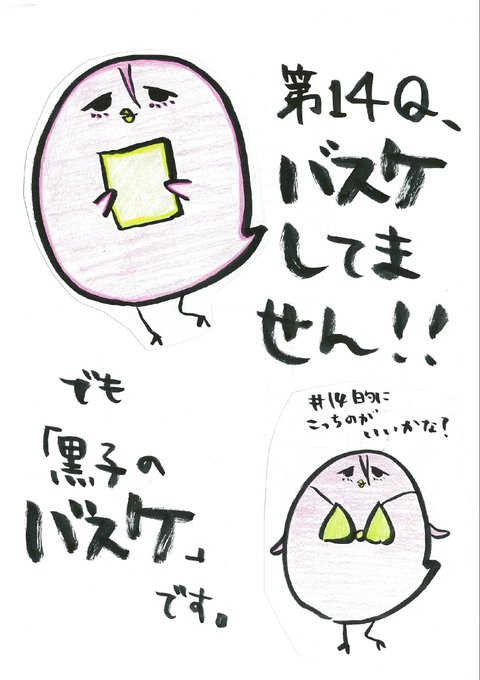 第14Q、
バスケ
してま
せん!!
でも
「黒子の
バスケ」
です。
#14的に
こっちのが
いいかな?